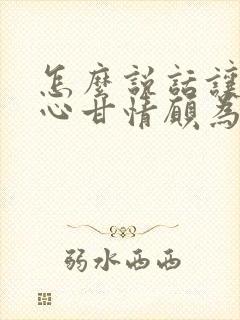 怎麼説話讓
心甘情願為
弱水西西